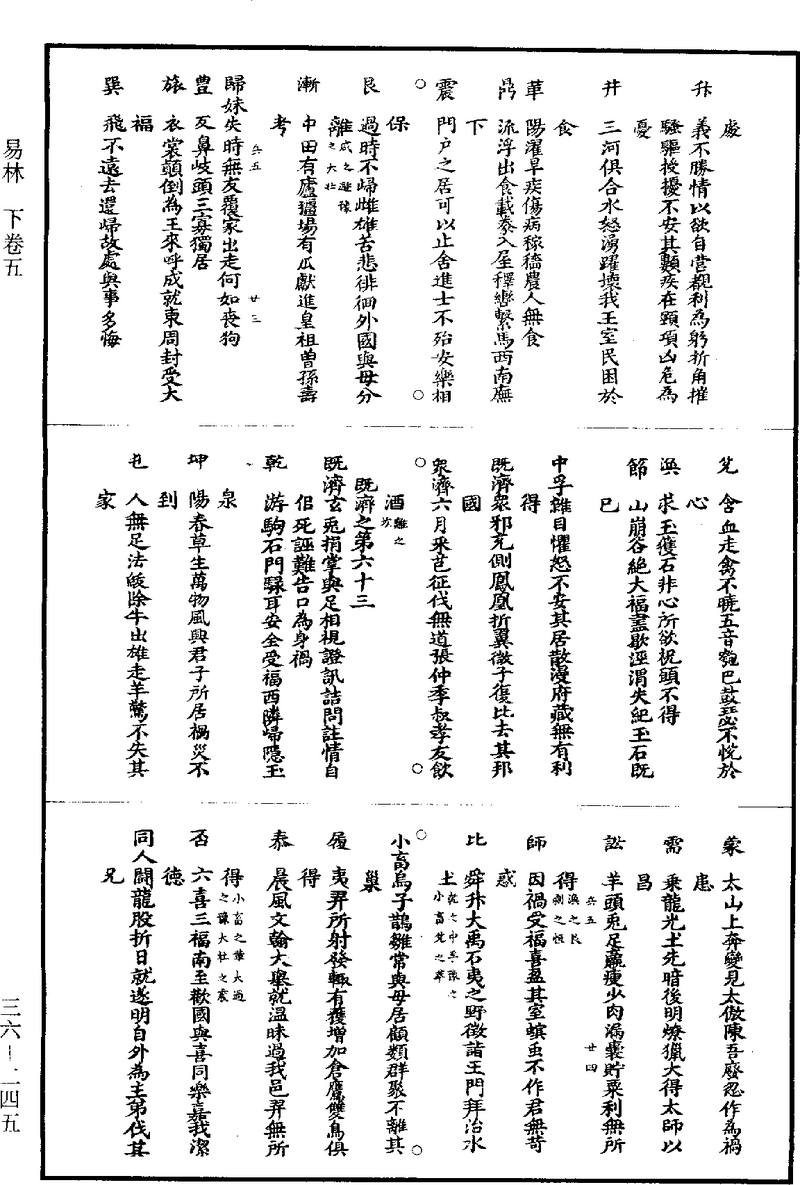 處
升 義不勝情以欲自營覯利為躬折角摧
騷驅授擾不安其顆疾在頸項凶危為
憂
井 三河俱合水怒湧躍壞我王室民困於
食
革 陽濯旱疾傷病稼穡農人無食
鼎 流浮出食載豢入屋釋轡繫馬西南廡
下
震 門戶之居可以止舍進士不殆安樂相
保
艮 過時不歸雌雄苦悲徘徊外國與母分
離咸之遯豫之大壯
漸 中田有廬疆場有瓜獻進皇祖曾孫壽
考
歸妹失時無友覆家出走何如喪狗
五五 廿三
豐 反鼻歧頭三寡獨居
旅 衣裳顛倒為王來呼成就東周封受大
福
巽 飛不遠去還歸故處興事多悔
兌 含血走禽不曉五音瓠巴鼓瑟不悅於
心
渙 求玉獲石非心所欲祝頭不得
節 山崩谷絕大福盡歇涇渭失紀玉石既
已
中孚雖目懼怒不安其居散漫府藏無有利
得
既濟眾邪充側鳳凰折翼微子復比去其邦
國
眾濟六月采芑征伐無道張仲季叔孝友飲
酒離之坎
既濟之第六十三
既濟玄兎捐掌與足相視證訊詰問註情自
侶死誣難告口為身禍
乾 游駒石門騄耳安全受福西隣歸隱玉
泉
坤 陽春草生萬物風興君子所居禍災不
到
屯 人無足法皒除牛出雄走羊驚不失其
家
蒙 太山上奔變見太微陳吾廢忽作為禍
患
需 乘龍光土先暗後明燎獵大得太師以
昌
訟 羊頭兎足羸瘦少肉漏囊貯粟利無所
五五 廿四
得渙之艮剝之恒
師 因禍受福喜盈其室螟虫不作君無苛
惑
比 舜升大禹石夷之野徵詣王門拜治水
土乾之中孚豫之小畜兌之革
小畜烏子鵲雛常與母居顧類群聚不離其
巢
履 夷羿所射發輒有獲增加倉鷹雙鳥俱
得
泰 晨風文翰大舉就溫昧過我邑羿無所
得小畜之革大過之謙大壯之震
否 六喜三福南至歡國與喜同樂嘉我潔
德
同人鬪龍股折日就遂明自外為主弟伐其
兄
易林 下卷五
三六－二四五